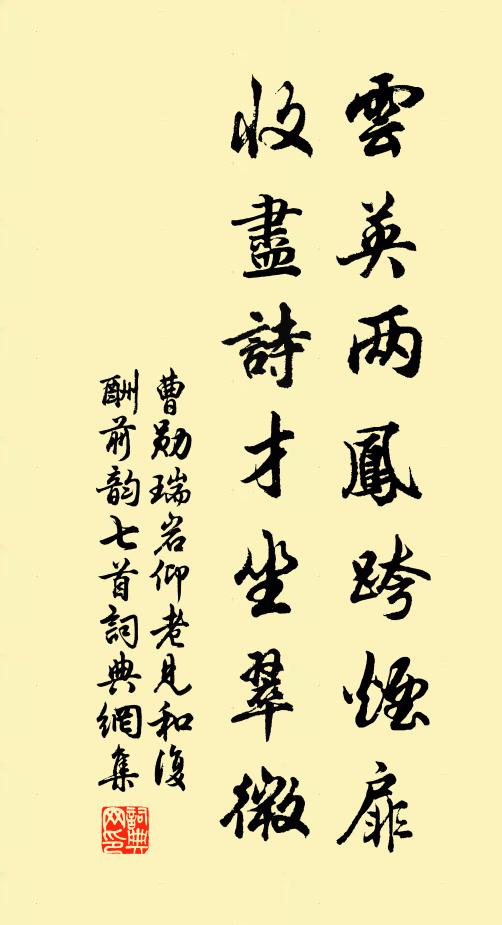 雲英两鳳跨煙扉
收盡詩才坐翠微
曹勛瑞岩仰老見和復
酬前韵七首詞典網集
詞典网印